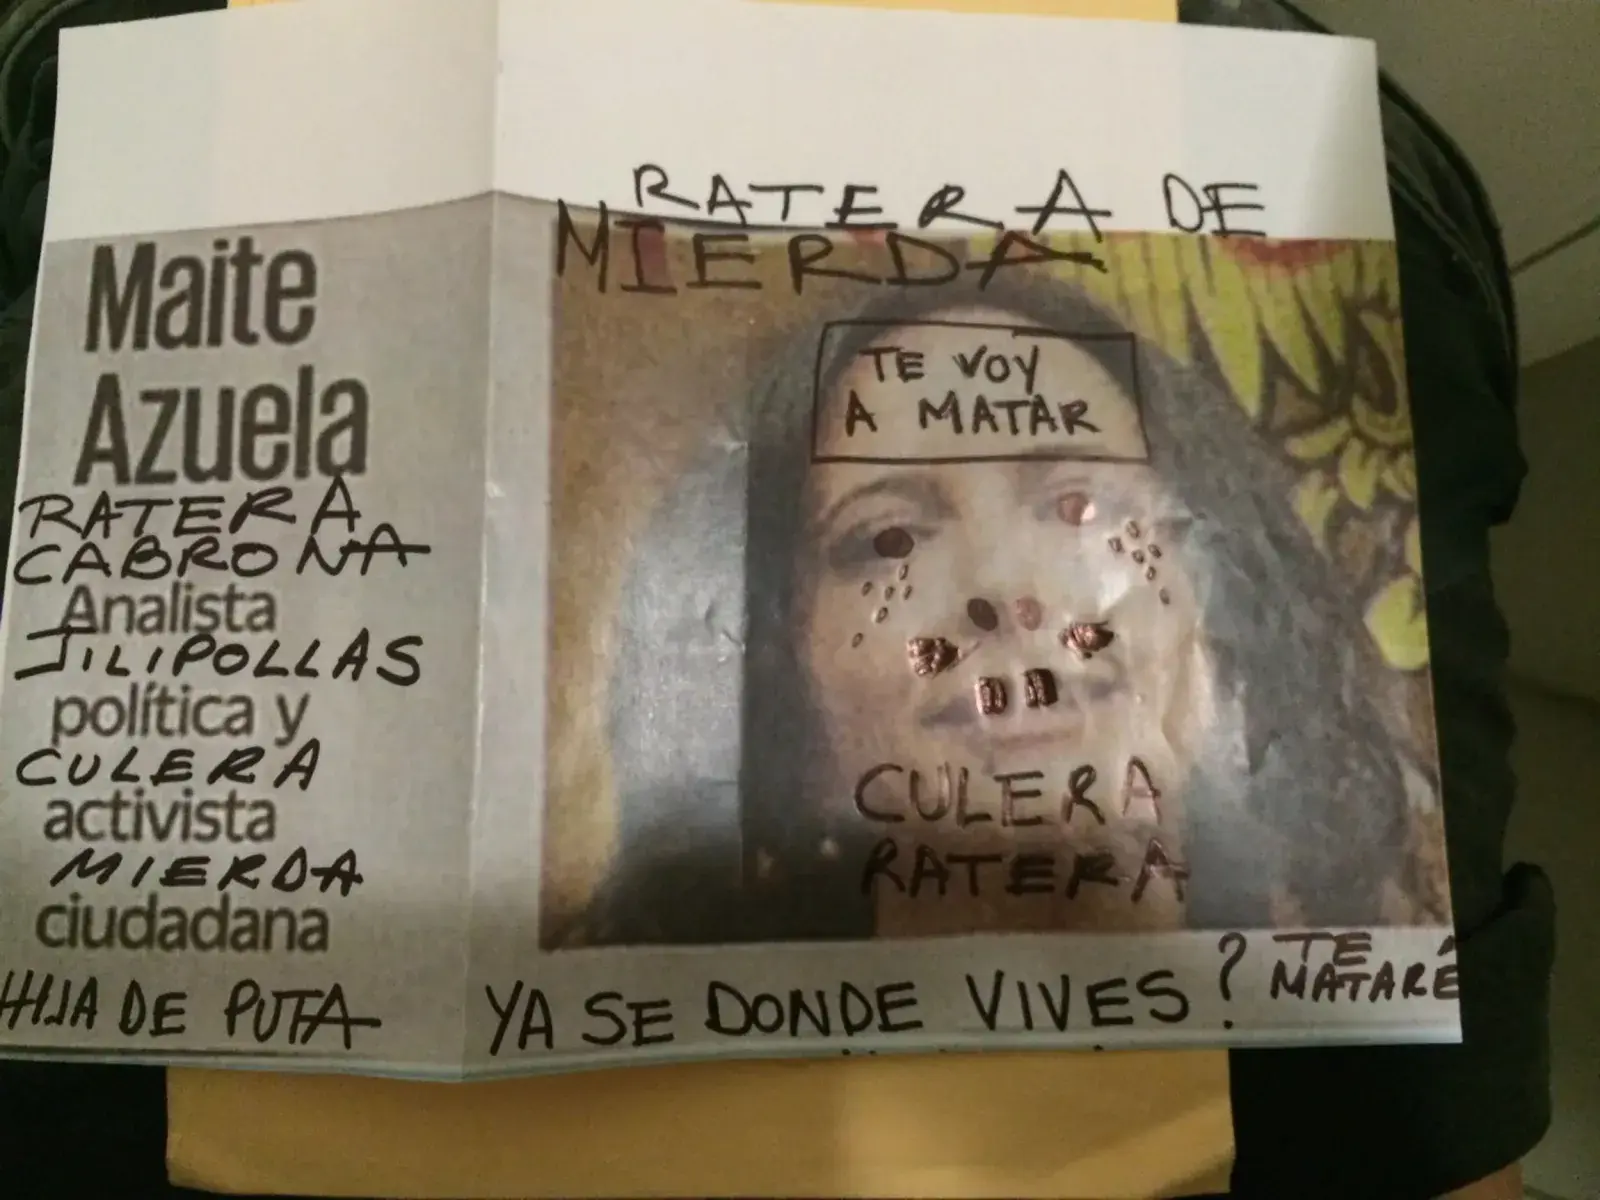 RATERA DE
MIERDA
TE VOY
A MATAR
Maite
Azuela
RATERA
CABRONA
Analista
JILIPOLLAS
política y
CULERA
activista
MIERDA
ciudadana
HIJA DE PUTA
CULERA
RATERA
YA SE DONDE VIVES?
TE
MATARÉ